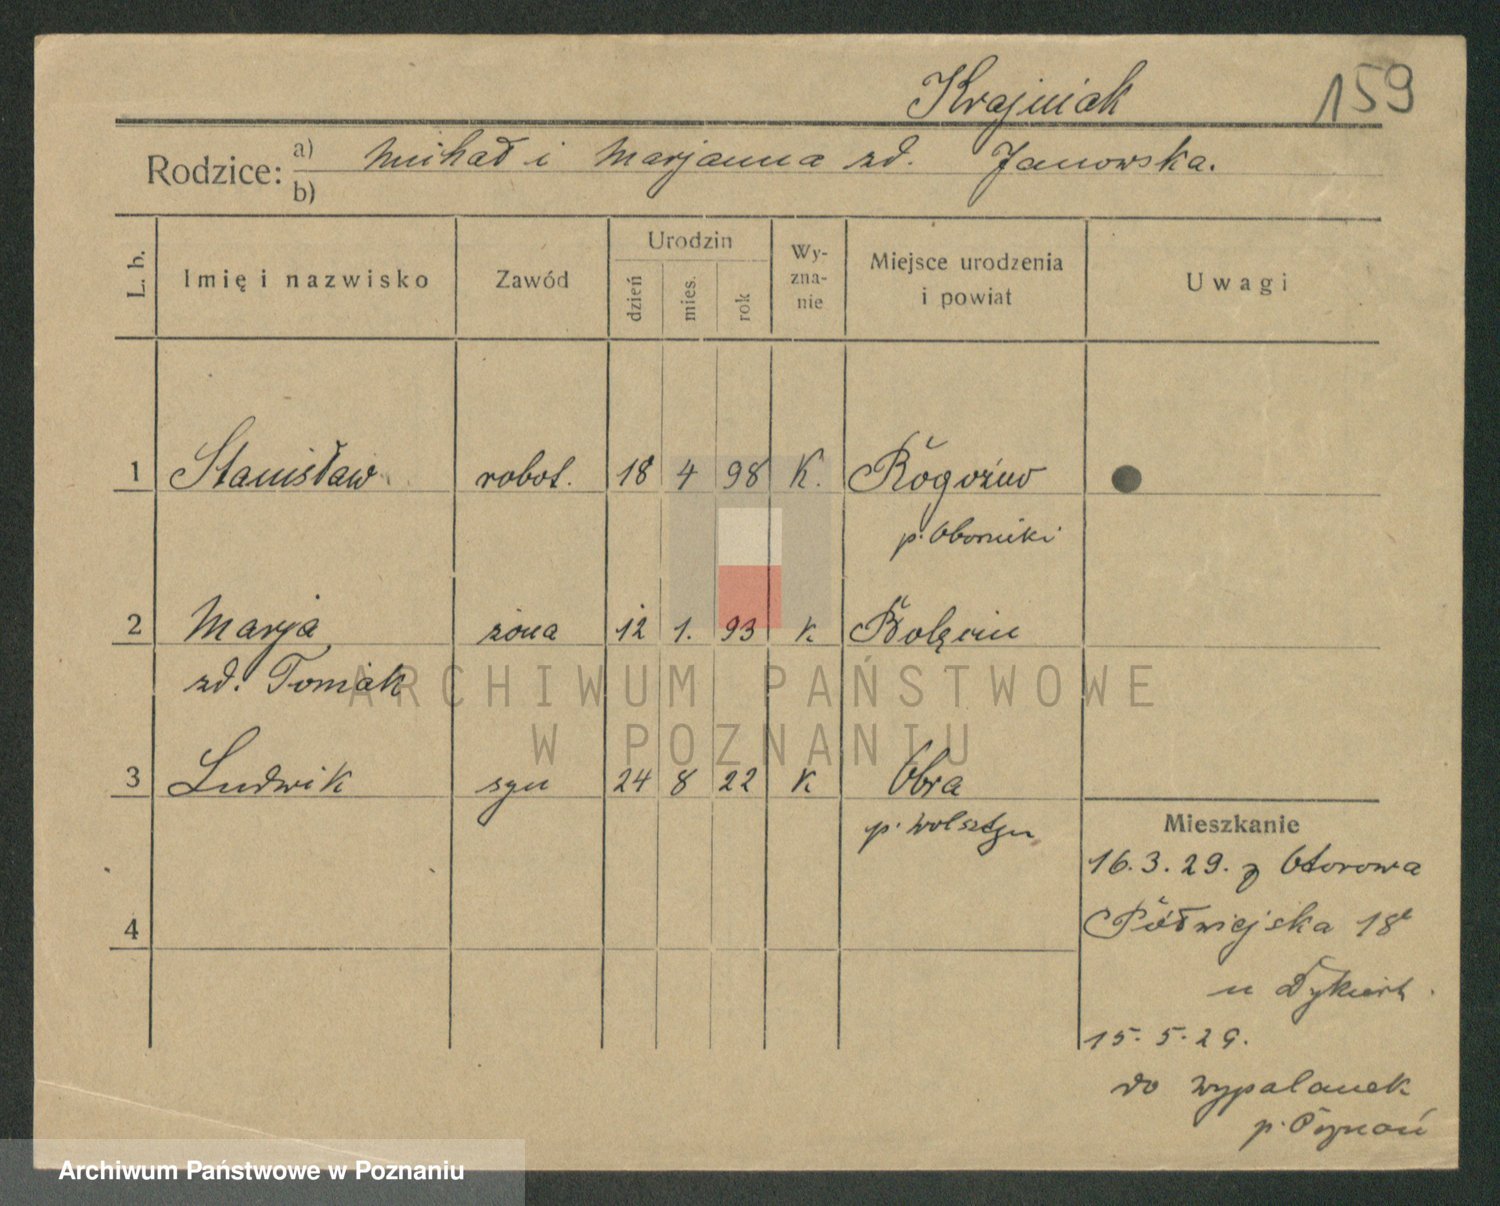 Krajniak 159
Rodzice: a) Michał i Marjanna zd. Janowska.
b)
L. b. Imię i nazwisko Zawód Urodzin dzień mies. rok Wy-zna-nie Miejsce urodzenia i powiat Uwagi
1 Stanisław robot. 18 4 98 K. Rogoźno
p. Oborniki
2 Marja żona 12 1. 93 K
zd. Tomiak
3 Ludwik syn 24 8 22 K Obra
p. Wolsztyn
Mieszkanie
16.3.29. z Otorowa
4 Półwiejska 18
u Dykiert.
15.5.29.
do Wypalanek
p. Poznań
ARCHIWUM PAŃSTWOWE
W POZNANIU
Archiwum Państwowe w Poznaniu